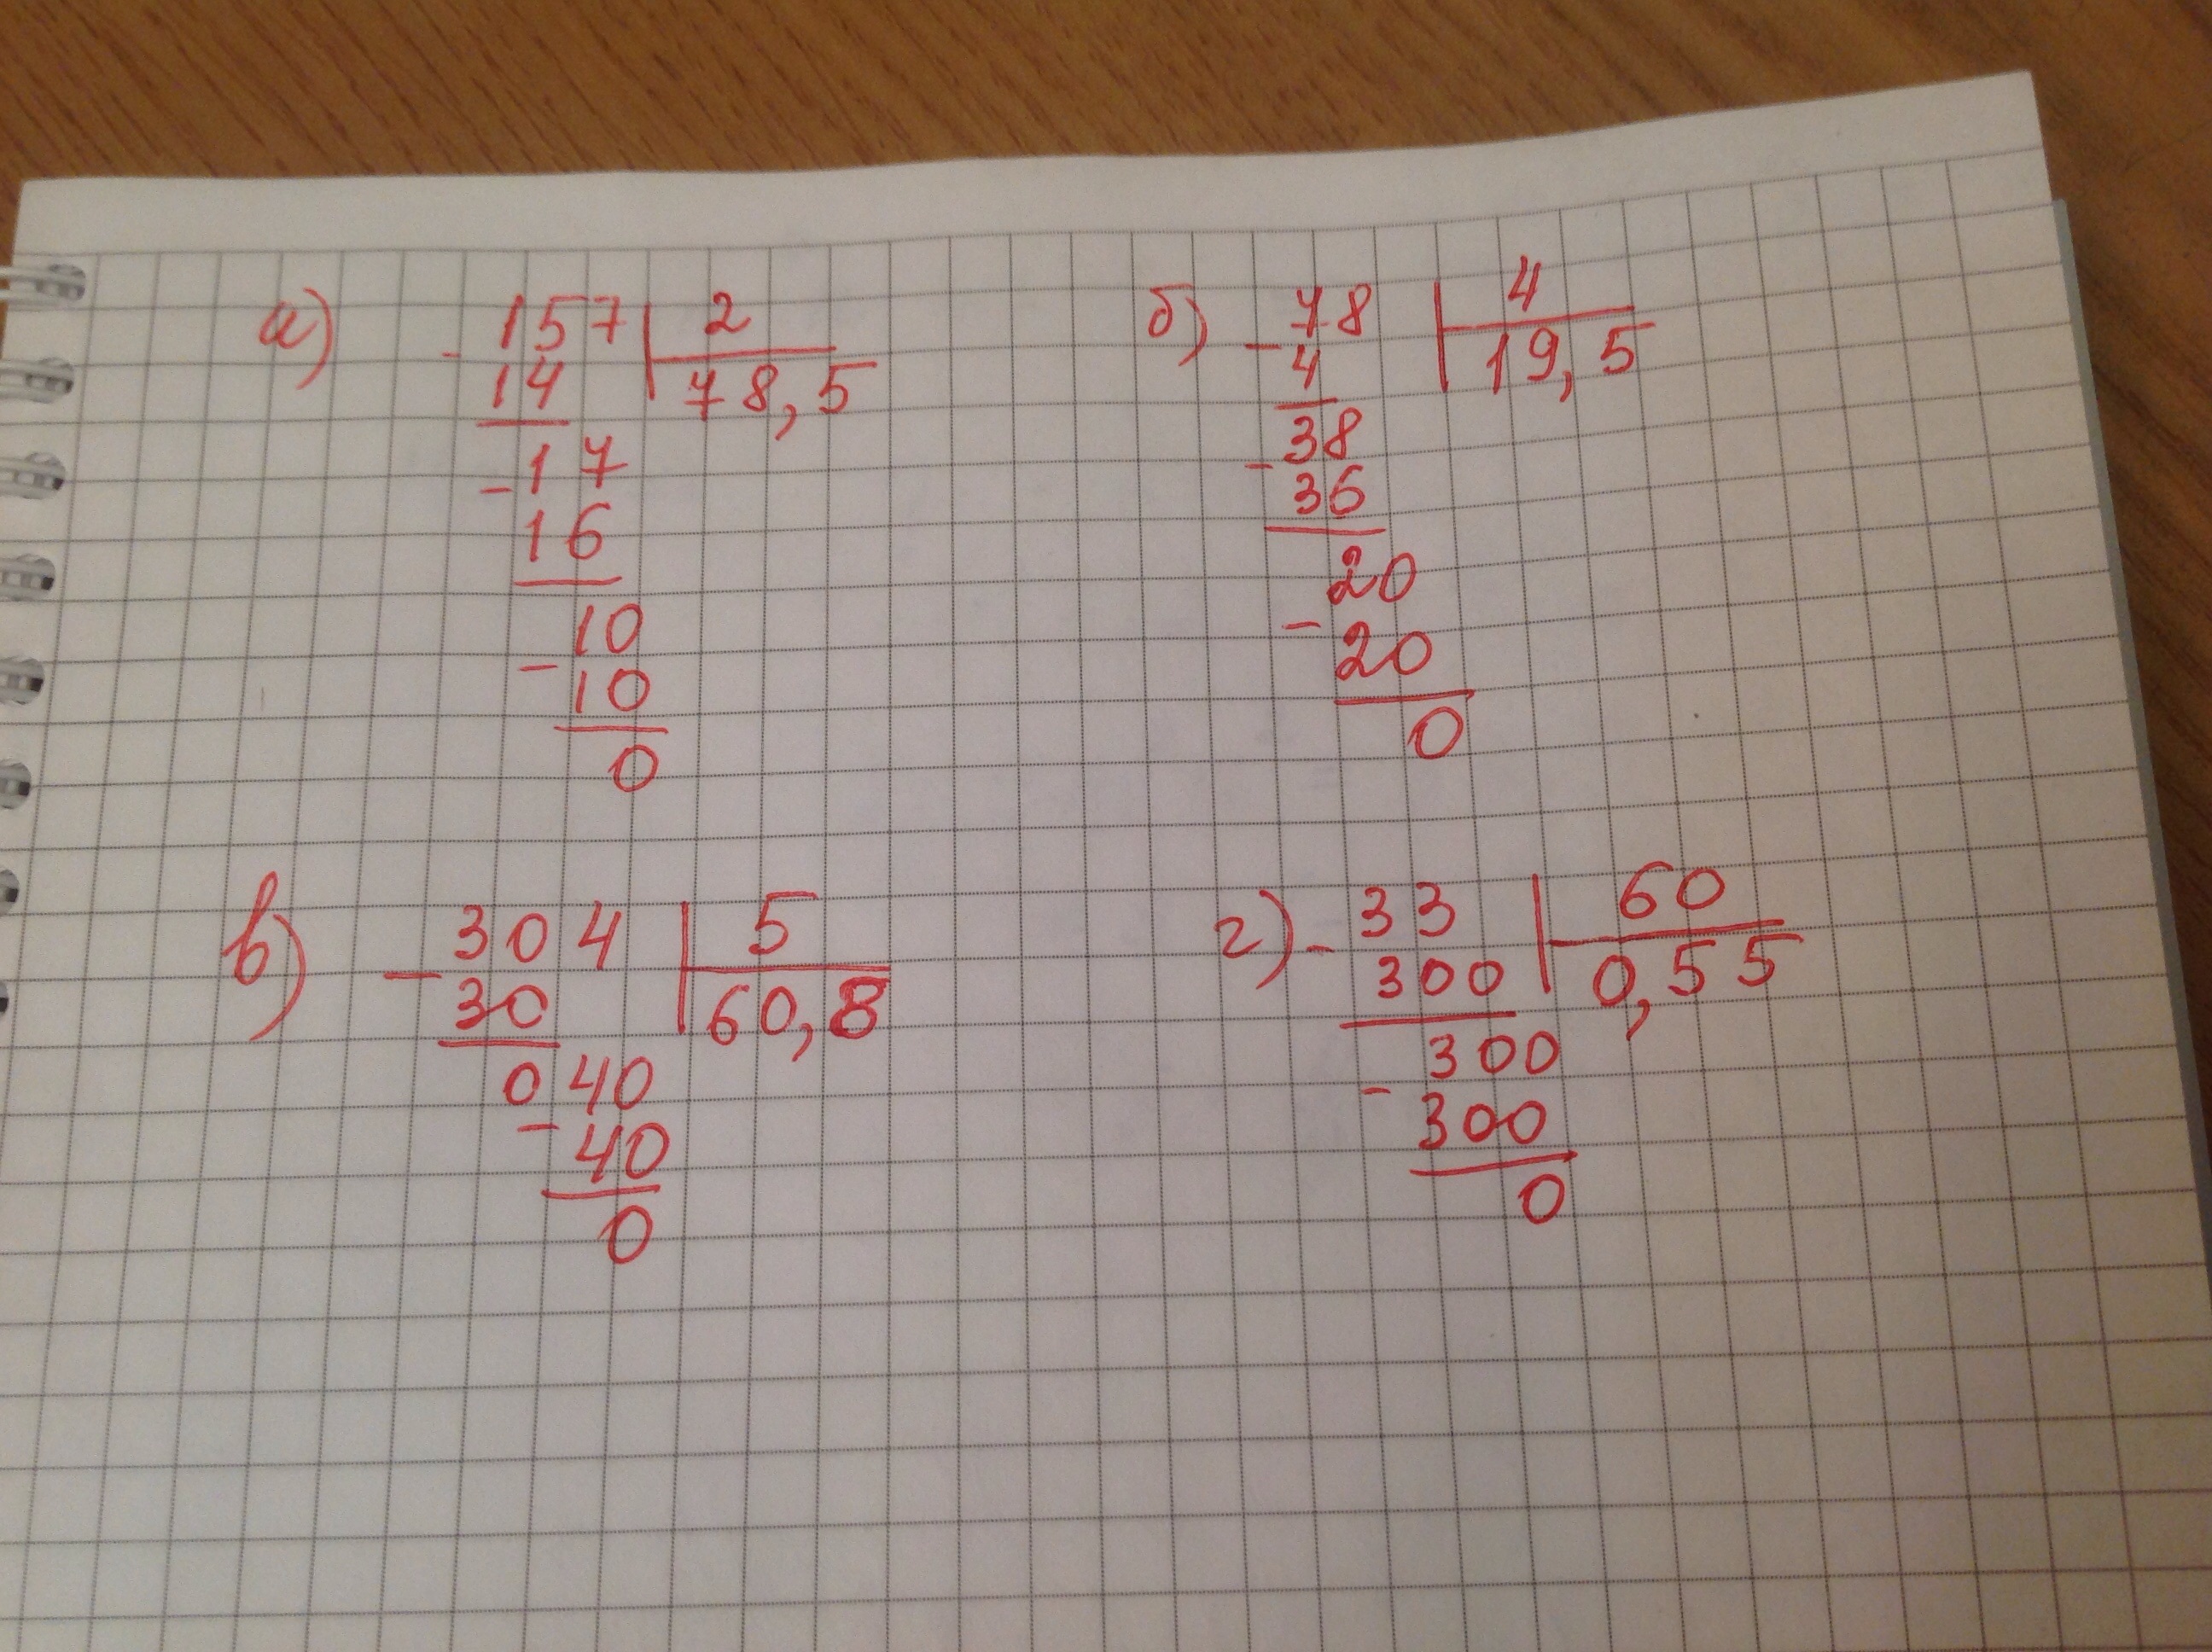 а) - 157 | 2
14 | 78,5
- 17
16
- 10
10
0
б) - 78 | 4
4 | 19,5
- 38
36
- 20
20
0
в) - 304 | 5
30 | 60,8
0 40
- 40
0
г) - 33 | 60
300 | 0,55
- 300
300
0